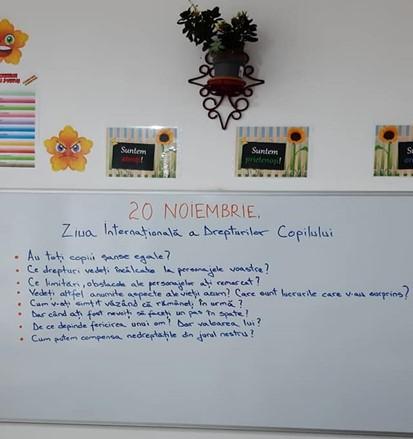 Suntem
atenți!
Suntem
prietenoși!
Suntem
20 NOIEMBRIE,
Ziua Internațională a Drepturilor Copilului
• Au toți copiii șanse egale?
• Ce drepturi vedeți încălcate la personajele voastre?
• Ce limitări, obstacole ale personajelor ați remarcat?
• Vedeți altfel anumite aspecte ale vieții acum? Care sunt lucrurile care v-au surprins?
• Cum v-ați simțit văzând că rămâneți în urmă?
• Dar când ați fost nevoiți să faceți un pas în spate?
• De ce depinde fericirea unui om? Dar valoarea lui?
• Cum putem compensa nedreptățile din jurul nostru?